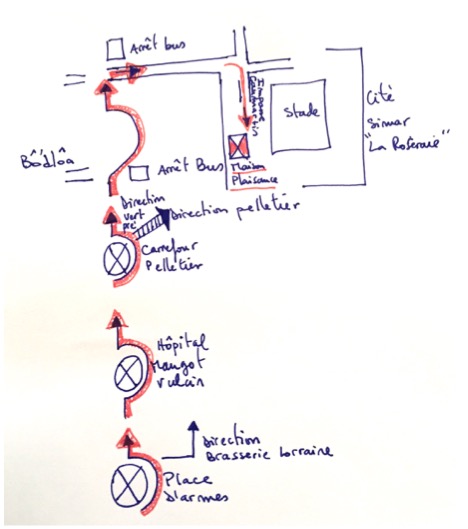 Arrêt bus
Impasse
Stade
Cité
Simar
"La Roseraie"
Bôdlôa
Arrêt Bus
Maison
Plaisance
Direction
vert
pré
Direction pelletier
Carrefour
Pelletier
Hôpital
Mangot
Vulcin
Direction
Brasserie Lorraine
Place
D'armes